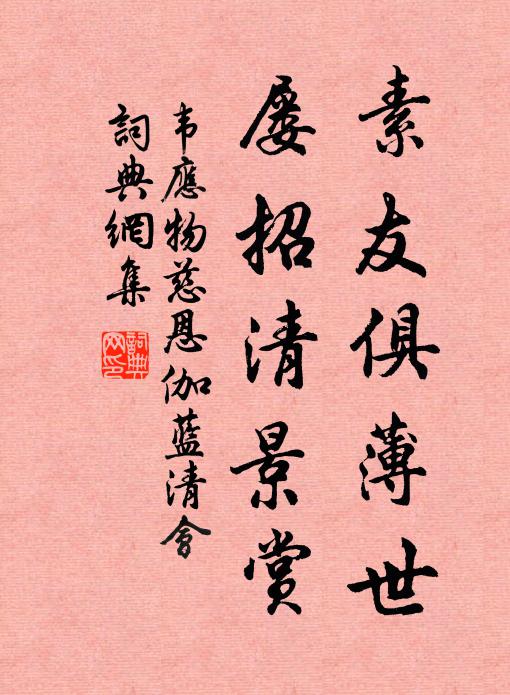 素友俱薄世
屡招清景賞
韦應物慈恩伽藍清會
詞典網集
詞典網印